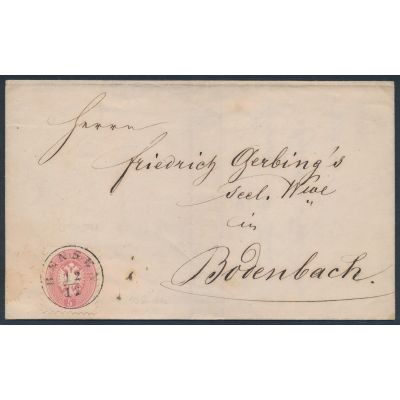 Herrn
Friedrich Gerbing's
seel. Wwe
in
Bodenbach.
BENSEN
12
12
5